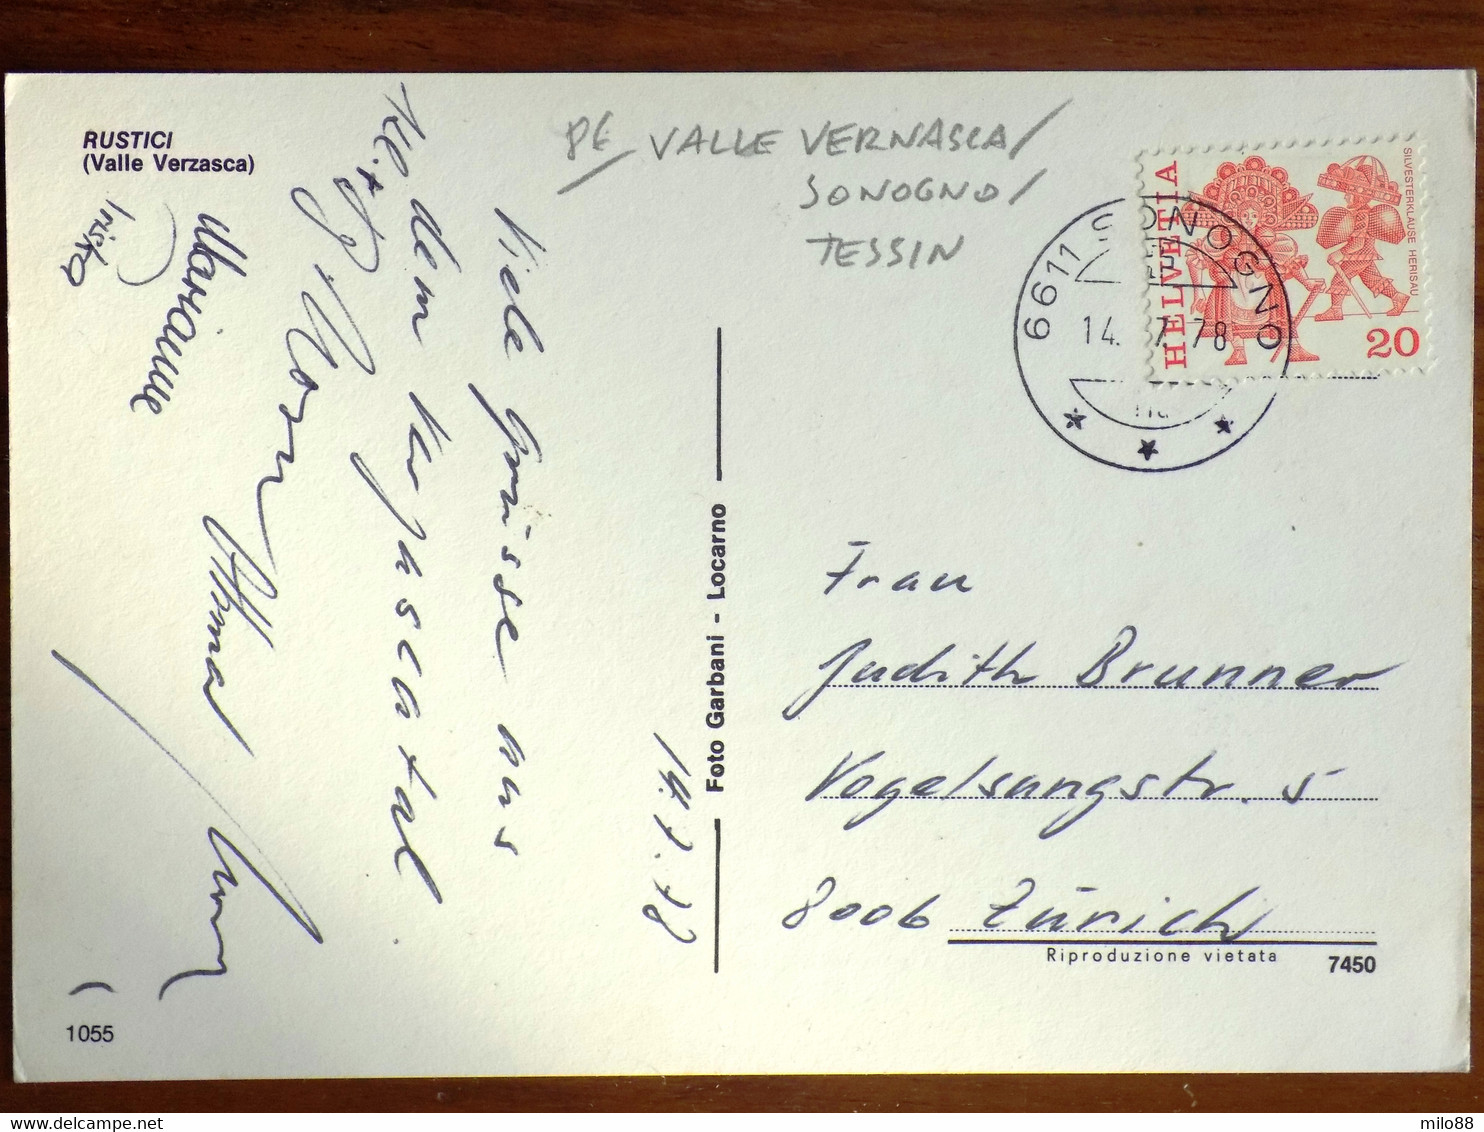 RUSTICI
(Valle Verzasca)
VALLE VERNASCA/
SONOGNO/
TESSIN
HELVETIA
SILVESTERKLÄUSE HERISAU
20
6611 SONOGNO
14. 7. 78
14.7.78
Viele Grüsse aus
dem Verzascatal
Marianne
Foto Garbani - Locarno
Frau
Judith Brunner
Vogelsangstr. 5
8006 Zürich
Riproduzione vietata
7450
1055
www.delcampe.net
milo88